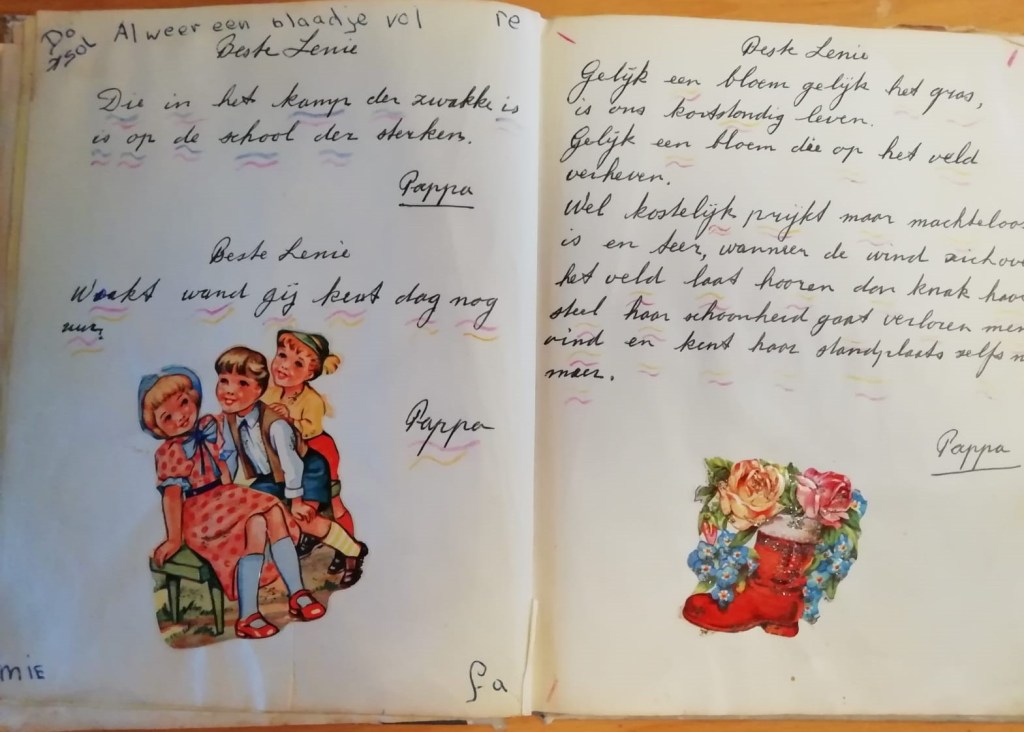 Do
sol
Al weer een blaadje vol
re
Beste Lenie
Die in het kamp der zwakke is
is op de school der sterken.
Pappa
Beste Lenie
Waakt wand gij kent dag nog
uur.
Pappa
MIE
fa
Beste Lenie
Gelijk een bloem gelijk het gras,
is ons kortstondig leven.
Gelijk een bloem die op het veld
verheven.
Wel kostelijk prijkt maar machteloos
is en teer, wanneer de wind zich ove
het veld laat hooren dan knak haar
steel haar schoonheid gaat verloren men
vind en kent haar standplaats zelfs n
meer.
Pappa